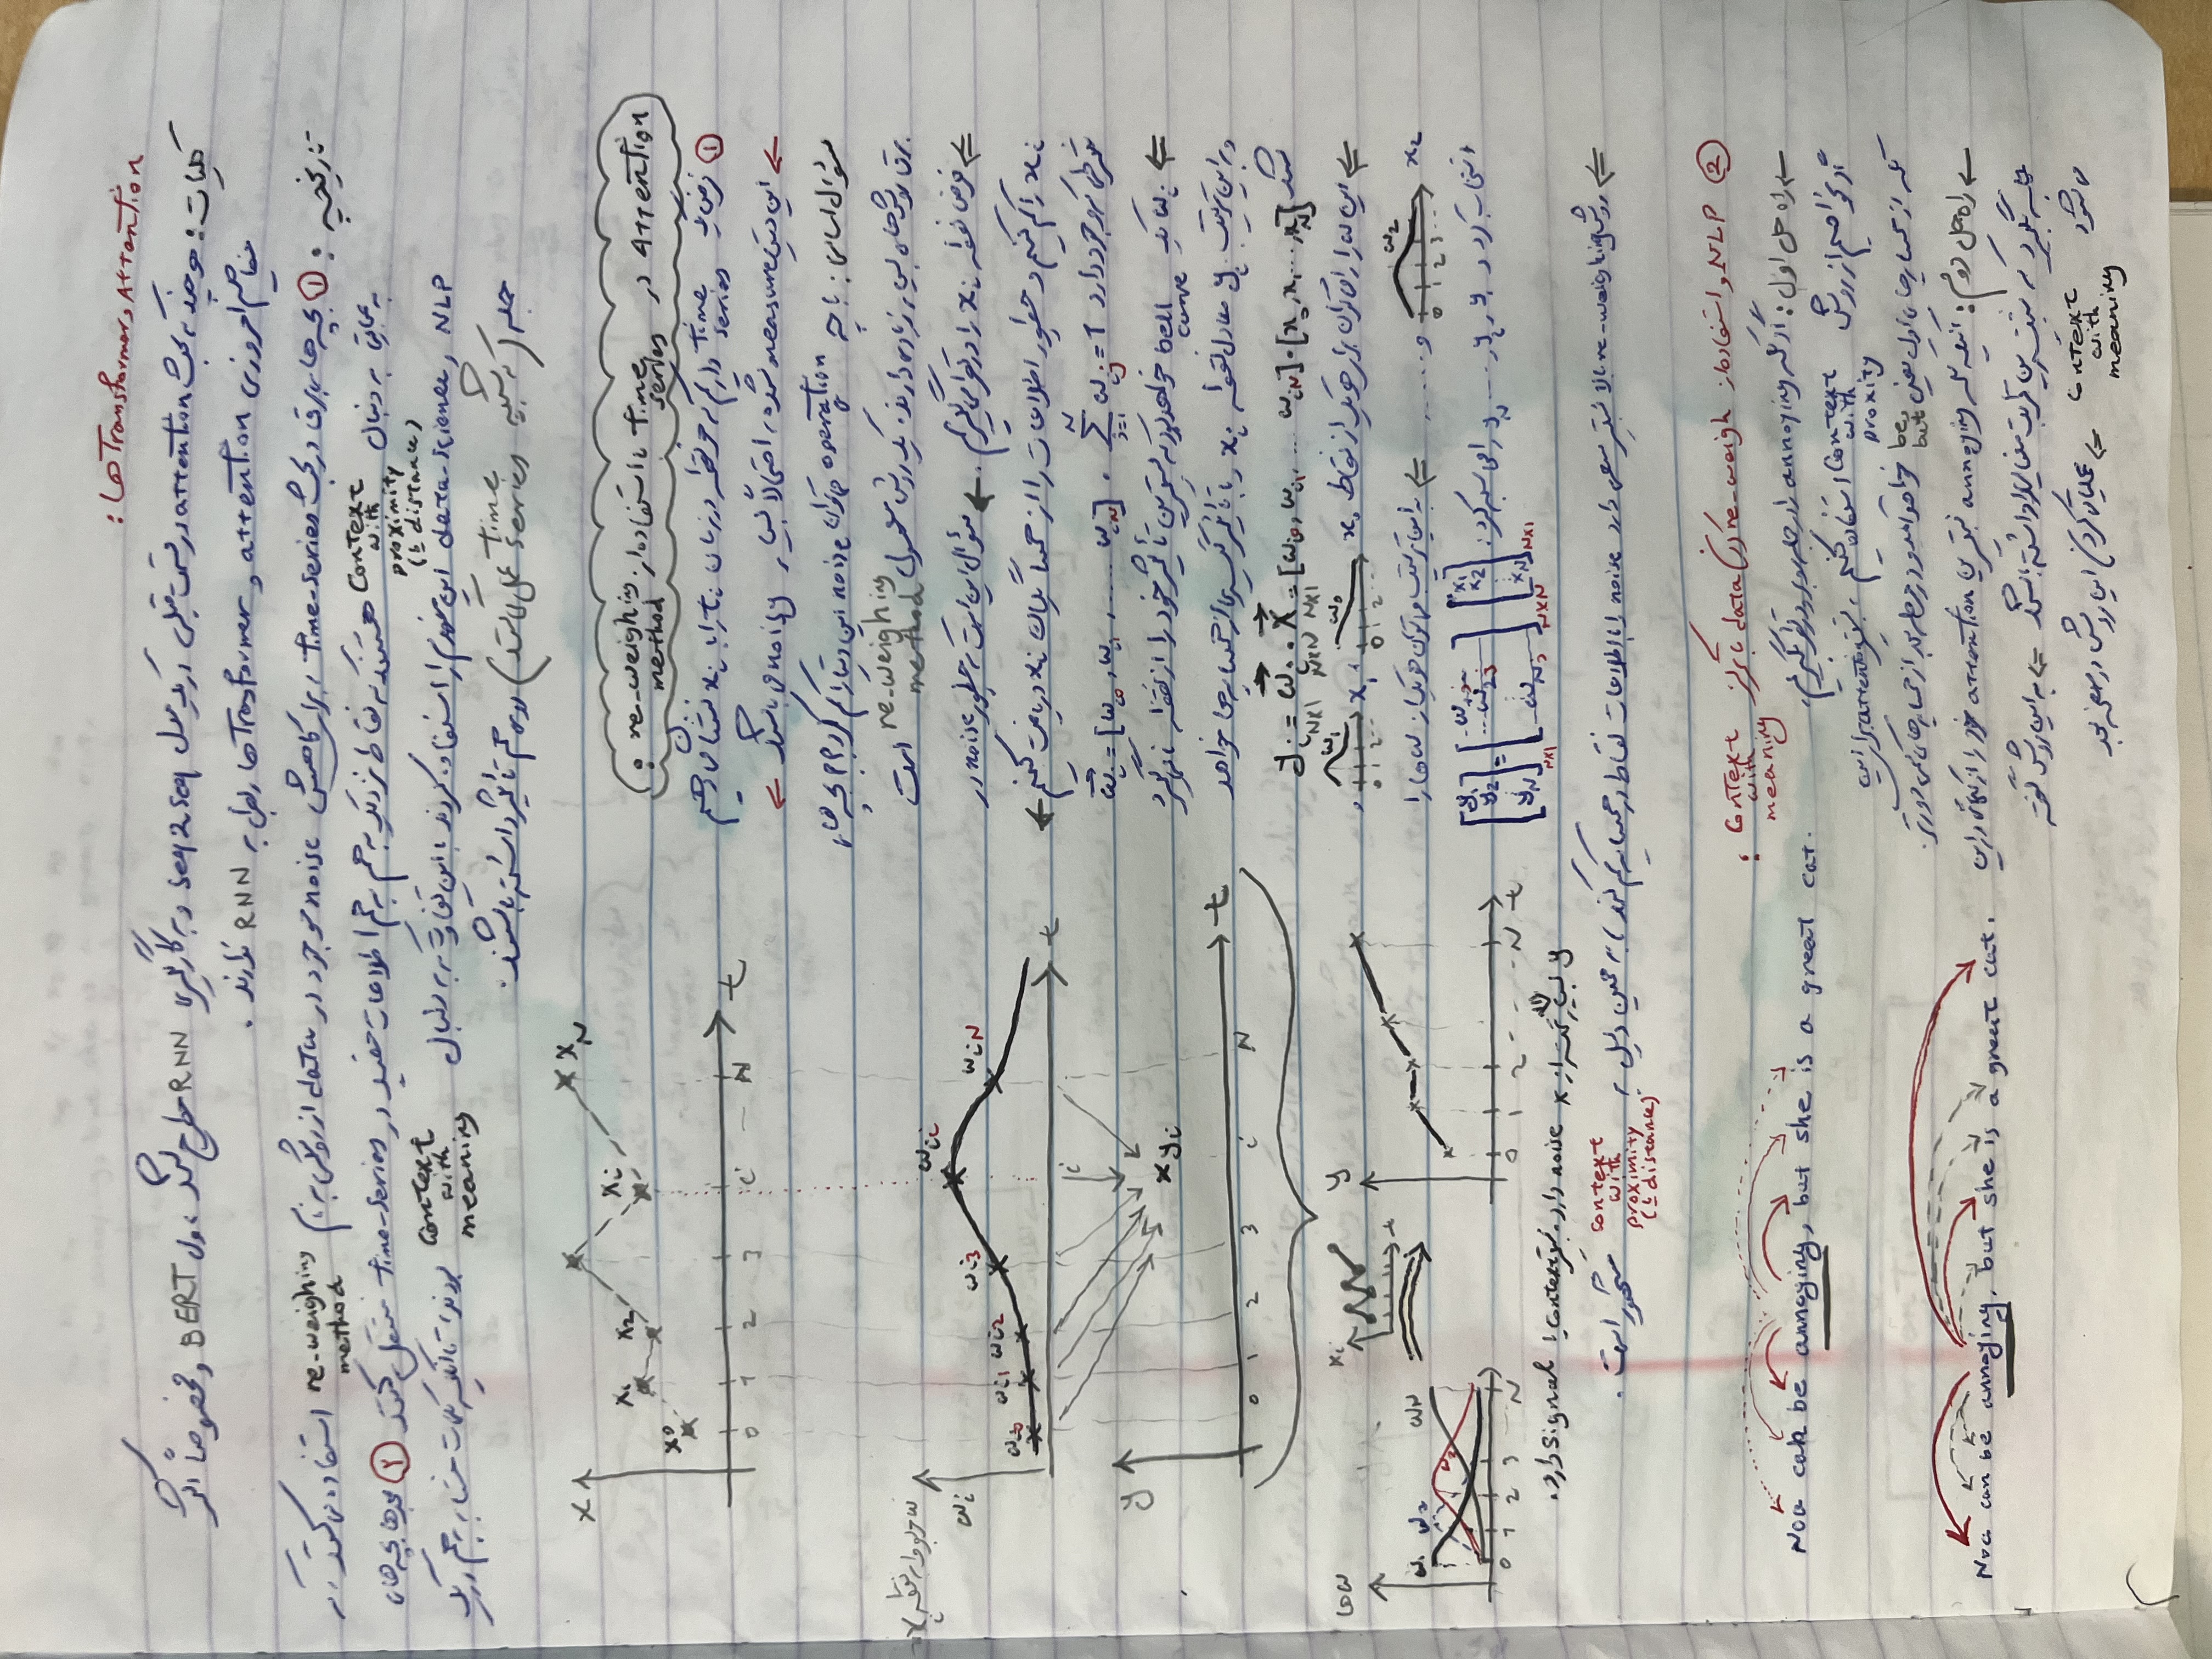 Attention و Transformer ها :
کلیات : هرچند که بحث attention در قسمت قبلی در یک مدل seq2seq و به کارگیری RNN مطرح شد ، ولی BERT و مخصوصاً اکثر
مفاهیم امروزی attention و Trasformer ها ربطی به RNN ندارند .
تاریخچه : ① بچه های برق در بحث time-series ، برای کاهش noise موجود در data از روشی به نام re-weighing method استفاده می کنند ، که
به عبارتی به دنبال context with proximity (یا distance) هستند که نقاط نزدیک به هم به هم اطلاعات مفید در time-series منتقل کنند ② بعدها بچه های
NLP و data-science این مفهوم را استفاده کردند با این تفاوت که به دنبال context with meaning بودند تا آنکه کلمات مشابه به هم در یک
جمله (که شبیه time series عمل می کند) روی هم تأثیر داشته باشند .
Attention در time series با استفاده از re-weighing method :
① فرض یک time series داریم که هر نقطه در زمان tᵢ را با xᵢ نشان می دهیم
⇐ این دیتای measure شده ، احتمالاً بسیار noisy می باشد ←
سؤال اساسی : با چه operation می توان noise این دیتا را کم کرد؟؟ بچه های
برق روش های بسیار زیادی دارند . یک روش معمول re-weighing method است
⇐ فرض نقطه xᵢ را در نظر می گیریم . ← سؤال این است که چطور noise در
xᵢ را کم کنیم و چطور اطلاعات را از همسایگان xᵢ دریافت کنیم ←
شرطی که وجود دارد ωᵢ = [ωᵢ₀, ωᵢ₁, ..... ωᵢN] , Σ ωᵢⱼ = 1
⇐ ωᵢ یک bell curve خواهد بود که بیشترین تأثیر خود را از نقطه i می گیرد
و به این ترتیب yᵢ معادل نقطه xᵢ ، با تأثیر گیری از همسایه ها خواهد
شد yᵢ = ωᵢ . X = [ωᵢ₀, ωᵢ₁, ... ωᵢN] . [x₀, x₁ ..., xN]
N×1 N×N N×1
⇐ این ω را می توان برای هر یک از نقاط x₀ ω₀ 0 1 2... , x₁ ω₁ 0 1 2... ,
x₂ ω₂ 0 1 2 3... , ...... ⇐ به این ترتیب می توان هر یک از ω ها را
انتخاب کرد و y₁ , y₂ , .... yN را محاسبه کرد :
[y₁ y₂ yN] N×1 = [ω₁ⱼ ω₂ⱼ ωNⱼ] N×N [x₁ x₂ xN] N×1
x
x₀ x₁ x₂ xᵢ xN
0 1 2 3 i N t
ω مربوط به نقطه xᵢ
ωᵢ
ωᵢ₀ ωᵢ₁ ωᵢ₂ ωᵢ₃ ωᵢᵢ ωᵢN
t
i
y
yᵢ
0 1 2 3 i N t
ω ها
ω₁ ω₂ ω₃ ωN
0 1 2 3 N
xᵢ
t
y
0 1 2 N t
y بسیار کمتر از x noise دارد . بیشتر context یا signal دارد .
⇐ روش re-weighing بالا بیشتر سعی دارد noise را با اطلاعات نقاط در همسایه کم کند ، به همین دلیل به context with proximity (یا distance) مشهور است .
② NLP و استفاده از re-weigh کردن data با تمرکز context with meaning :
← راه حل اول : اگر کلمه annoying را در جمله روبرو در نظر بگیریم ،
اگر بخواهیم از روش context with proxity استفاده کنیم ، بیشترین attention برای این
کلمه از همسایه های اول یعنی be و but خواهد آمد و در مرحله بعد از همسایه های کمی دورتر .
Noa can be annoying, but she is a great cat.
← راه حل دوم : آنکه کلمه annoying بیشترین attention خود را از کلماتی در این
جمله بگیرد که بیشترین قرابت معنایی را داشته باشد ⇐ به این روش گفته
می شود context with meaning ⇐ عملیاتی کردن این روش در صفحه بعد
Noa can be annoying, but she is a great cat.